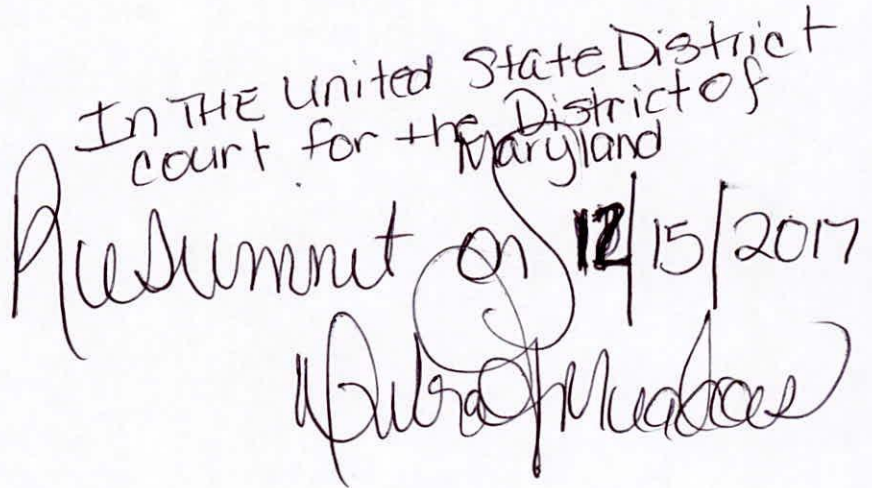 In THE United State District
court for the District of
Maryland
Resummit on 12/15/2017